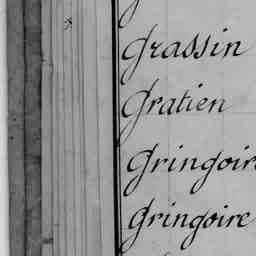 Grassin
Gratien
Gringoire
Gringoire